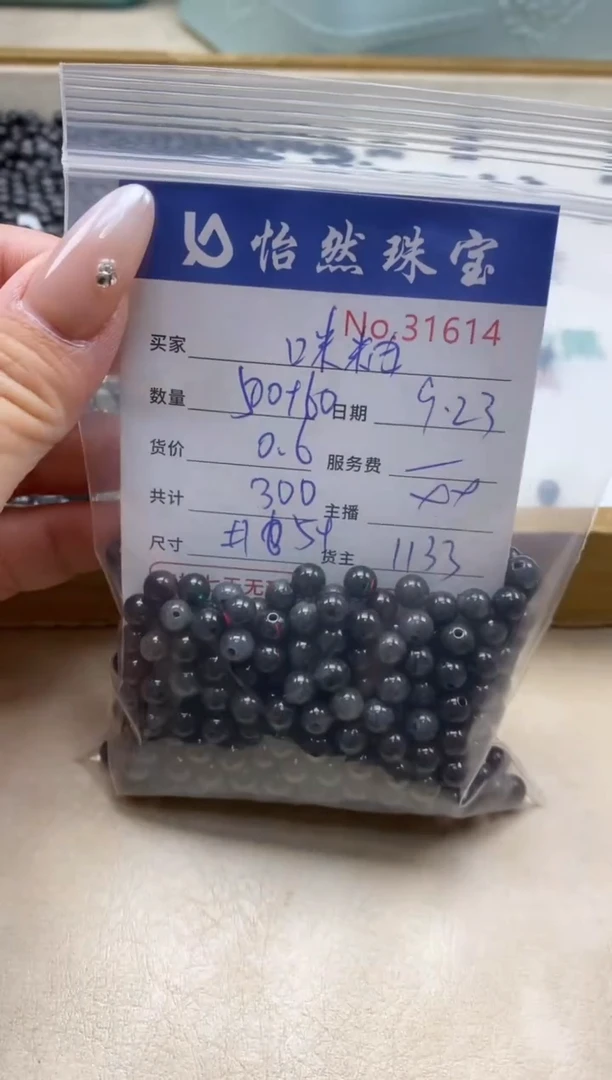 怡然珠宝
No.31614
买家
数量 500+60 日期 9.23
货价 0.6 服务费 —
共计 300 主播
尺寸 货主 1133
七天无